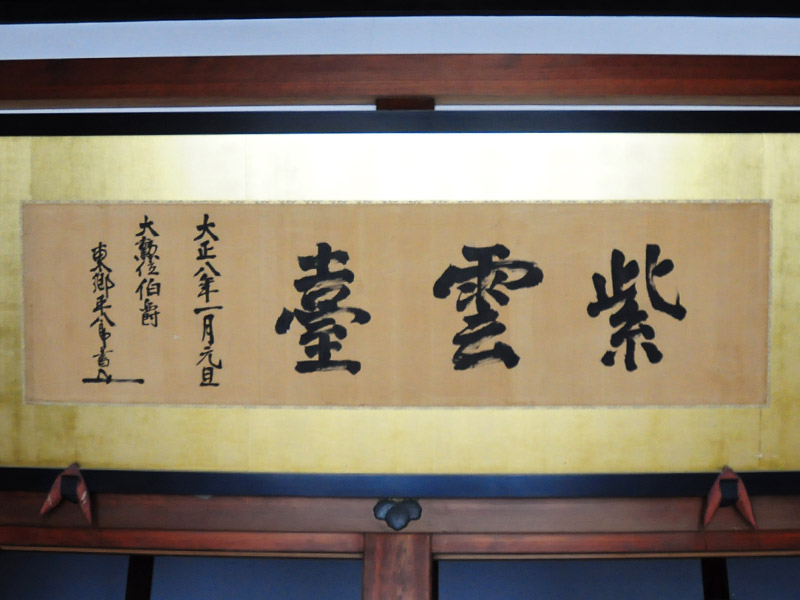 紫雲臺
大正八年一月元旦
大勲位伯爵
東郷平八郎書